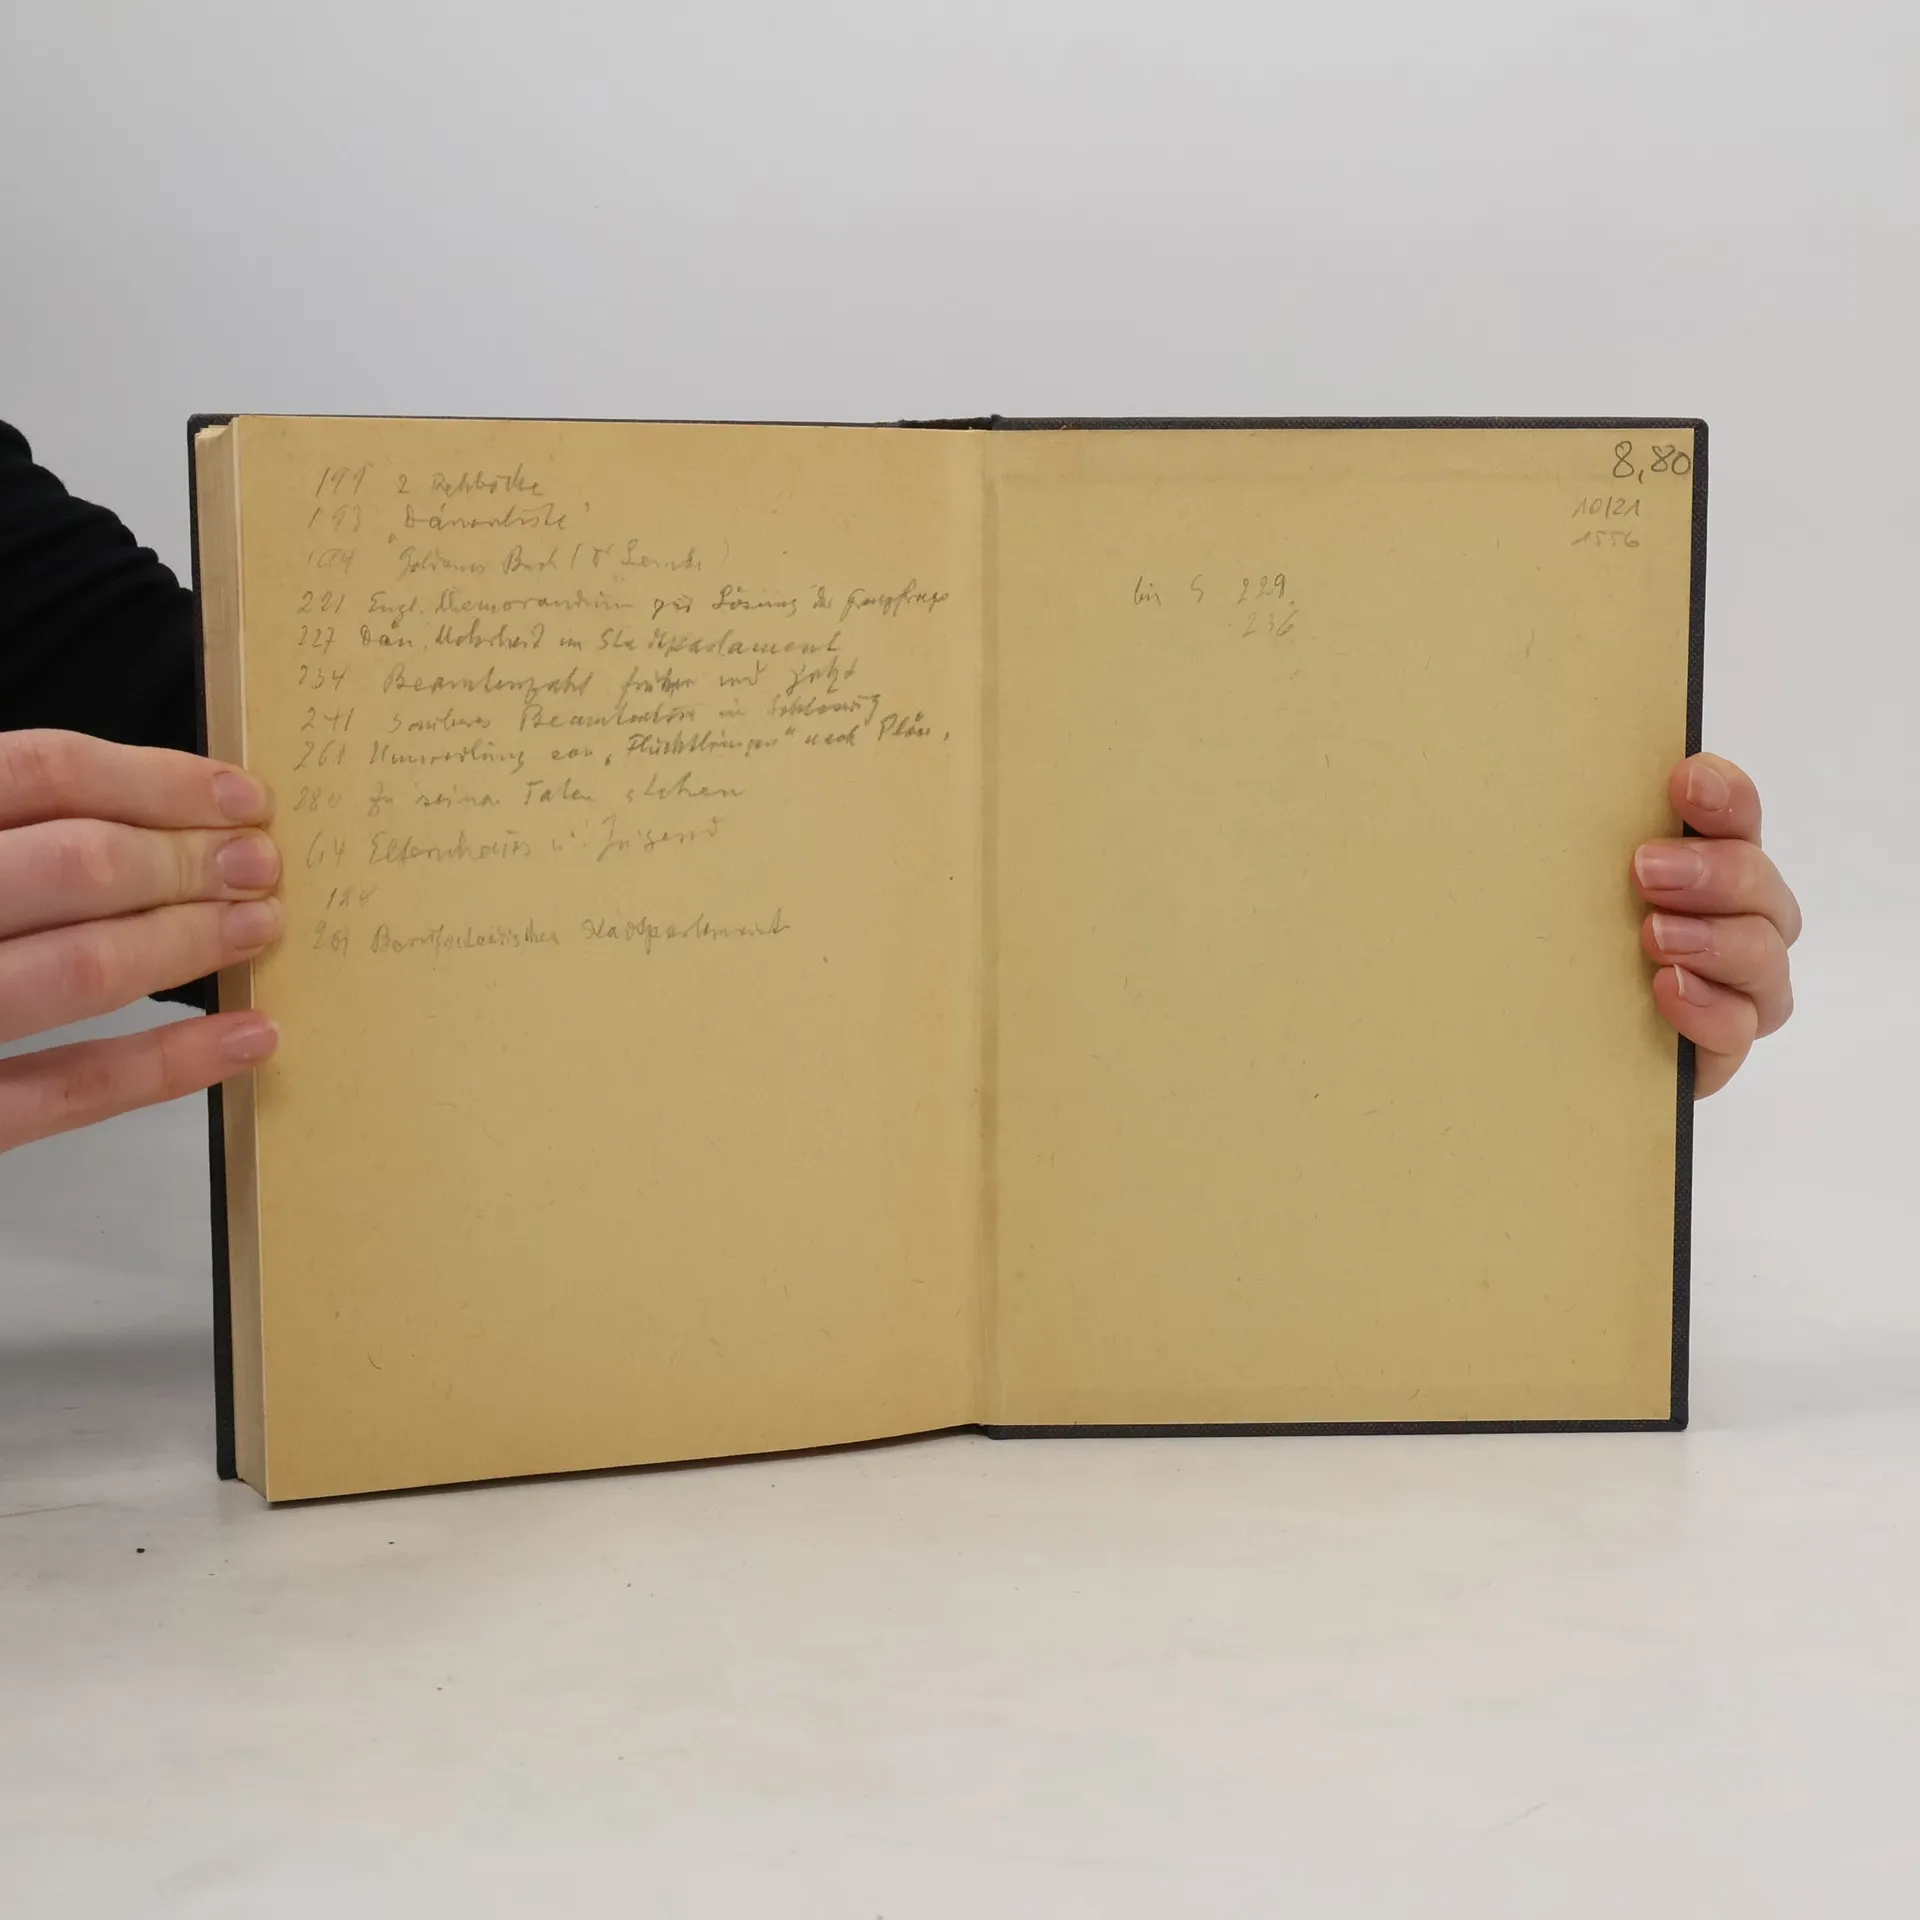 191 2 Rehböcke
193 „Dänenliste“
194 Goldenes Buch (
221 Engl. Memorandum zur Lösung der Grenzfrage
227 Dän. Mehrheit im Stadtparlament
234 Beamtenzahl früher und jetzt
241 Sauberes Beamtentum in Schleswig
261 Umsiedlung von „Flüchtlingen“ nach Plön.
280 Zu seinen Taten stehen
64 Elternhaus u. Jugend
261 Stadtparlament
8,80
10/21
1556
bis S 229.
236